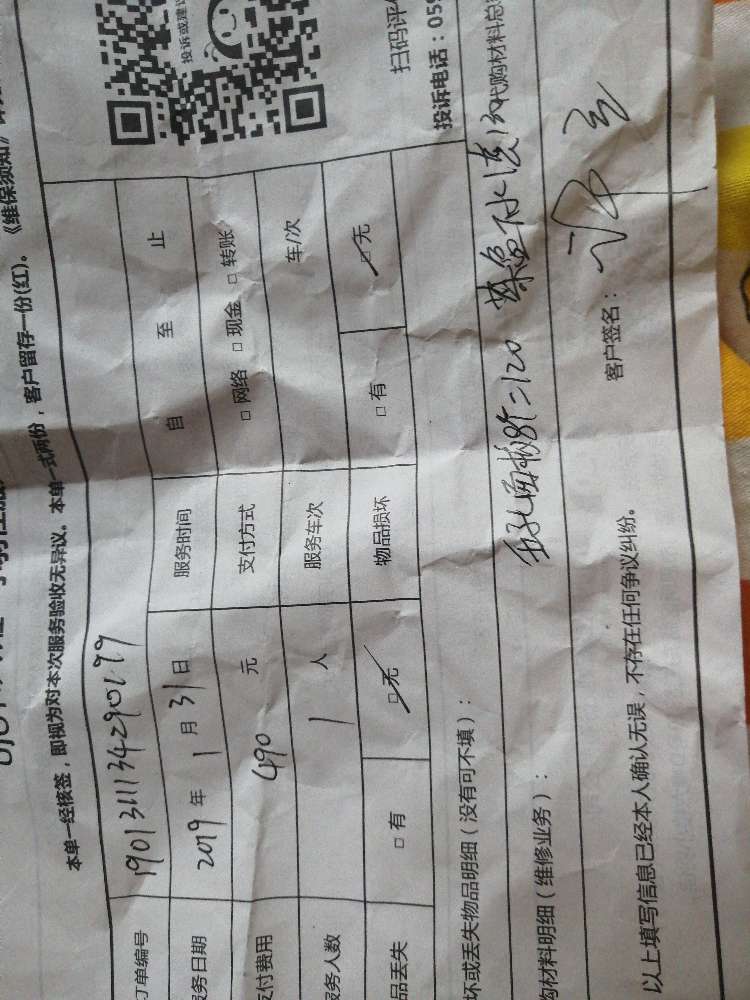 《维保须知》
本单一经核签，即视为对本次服务验收无异议。本单一式两份，客户留存一份(红)。
投诉或建议
扫码评价
投诉电话：059
订单编号 190131113429019
服务日期 2019 年 1 月 31 日 服务时间 自 至 止
支付费用 490 元 支付方式 □ 网络 □ 现金 □ 转账
服务人数 1 人 服务车次 车/次
物品丢失 □ 有 □ 无 物品损坏 □ 有 □ 无
坏或丢失物品明细（没有可不填）：
代购材料总
购材料明细（维修业务）： 五孔面板8个=120 菜盆下水
以上填写信息已经本人确认无误，不存在任何争议纠纷。 客户签名：